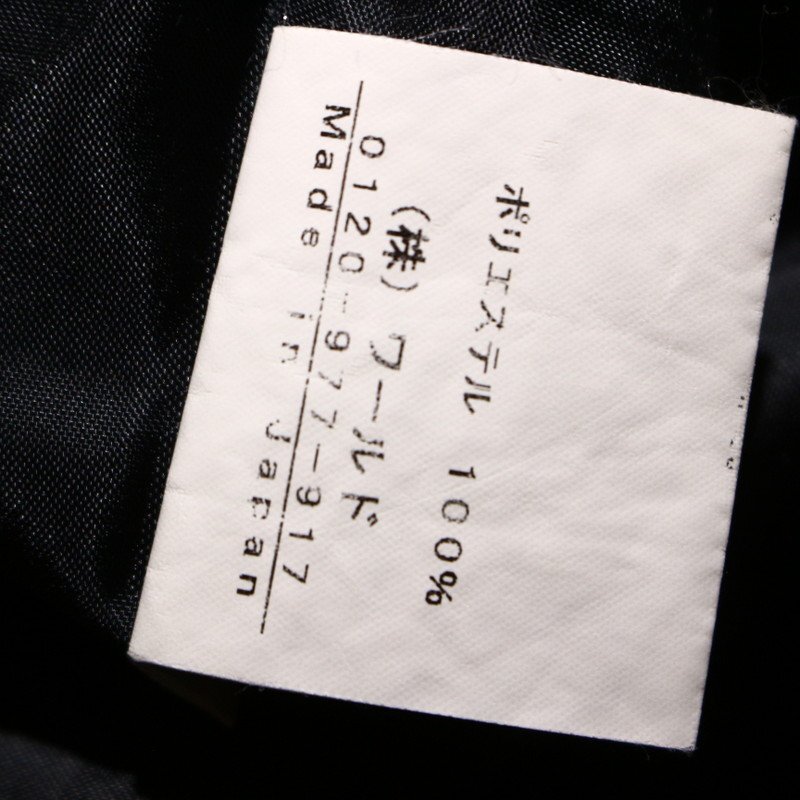 ポリエステル 100%
(株)ワールド
0120-977-917
Made in Japan